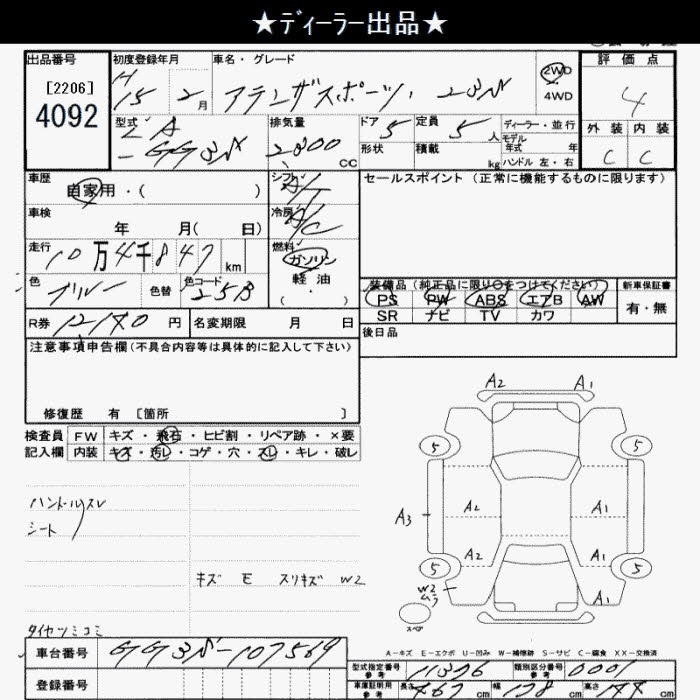 ★ディーラー出品★
出品番号
[2206]
4092
初度登録年月
H
15 2月
車名・グレード
アテンザスポーツ, 23N
2WD
4WD
評価点
4
外装 内装
C C
型式
LA
-GG3N
排気量
2300 CC
ドア 5
形状
定員 5人
積載 kg
ディーラー・並行
モデル
年式 年
ハンドル 左・右
車歴
自家用・( )
シフト
A/T
セールスポイント (正常に機能するものに限ります)
車検
年 月( 日)
冷房
A/C
走行
10万4千847 km
燃料
ガソリン
軽油
・
( )
色
ブルー
色替
色コード
25B
装備品(純正品に限り○をつけてください)
PS PW ABS エアB AW
SR ナビ TV カワ
新車保証書
有・無
R券 12140 円
名変期限 月 日
後日品
注意事項申告欄(不具合内容等は具体的に記入して下さい)
修復歴 有 [箇所 ]
検査員
記入欄
FW キズ・飛石・ヒビ割・リペア跡・×要
内装 キズ・汚レ・コゲ・穴・スレ・キレ・破レ
ハンドルスレ
シート
キズ E スリキズ W2
タイヤツミコミ
A2 A1
5 5
A2 A1
A3
A2 A1
5 5
W2
ムラ
A1
スペア
A-キズ E-エクボ U-凹み W-補修跡 S-サビ C-腐食 XX-交換済
車台番号 GG3N-107569
登録番号
型式指定番号
参考
11376
類別区分番号
参考
0001
車庫証明用
参考
長さ 467 cm 幅 178 cm 高さ 144 cm